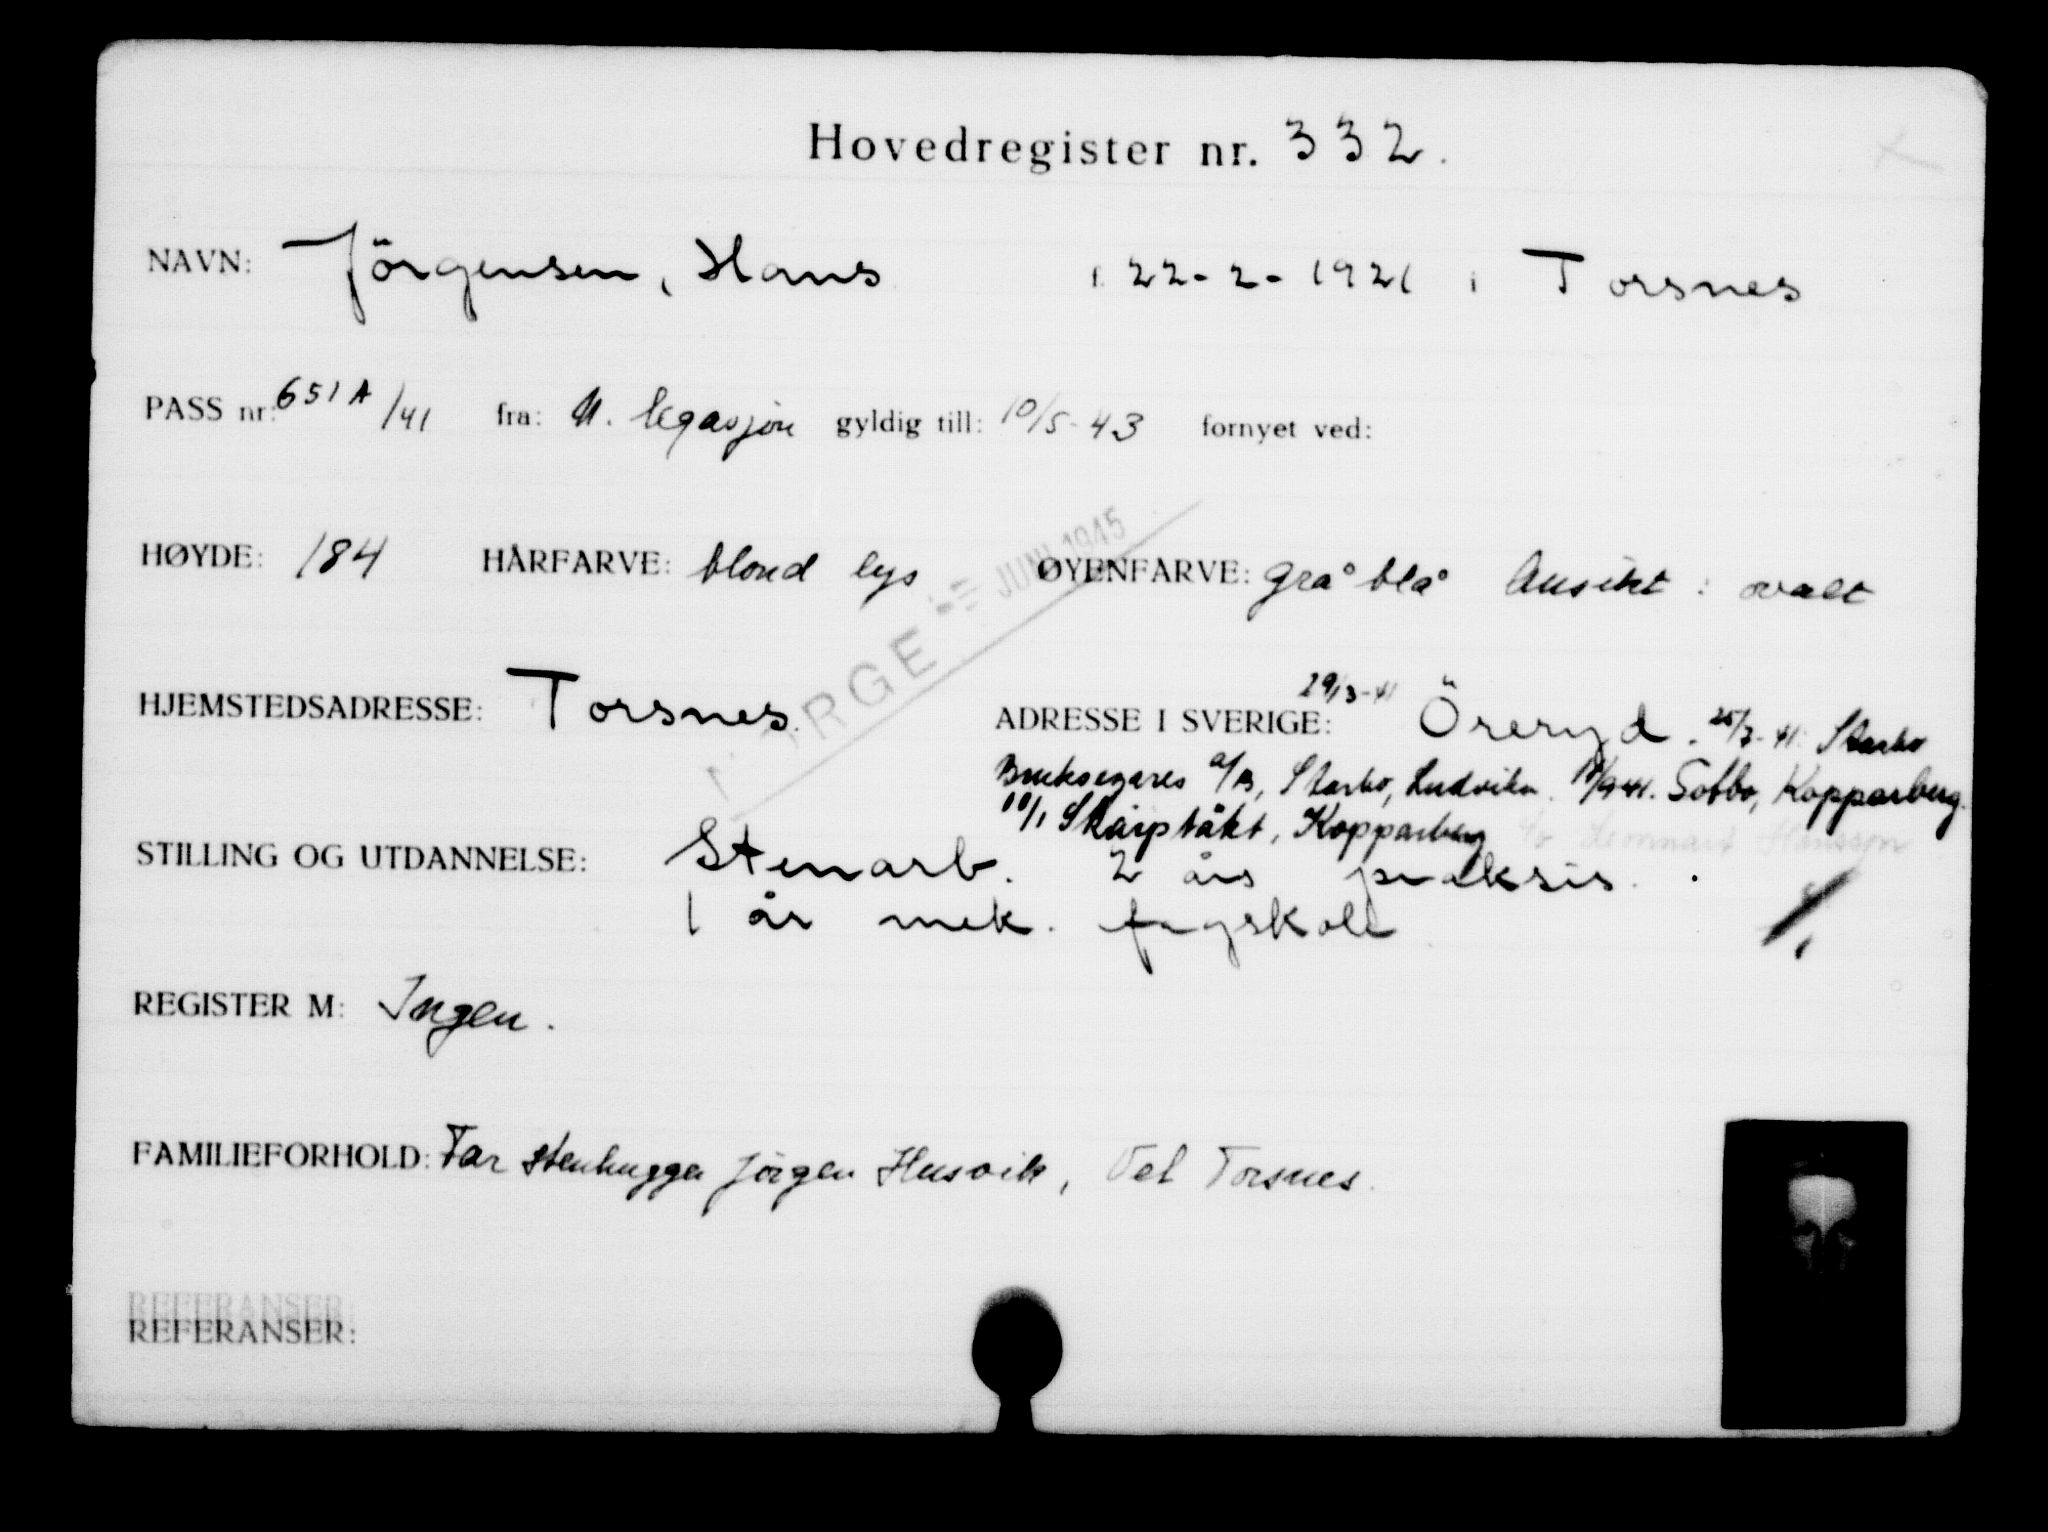 Hovedregister nr. 332.
NAVN: Jörgensen, Hans 22-2-1921 i Torsnes
PASS nr: 651 A/41 fra: N. legasjon gyldig till: 10/5-43 fornyet ved:
HØYDE: 184 HÅRFARVE: blond lys ØYENFARVE: grå blå Ansikt: ovalt
NORGE JUNI 1945
HJEMSTEDSADRESSE: Torsnes. ADRESSE I SVERIGE: 29/3-41 Öreryd. 25/7-41: Starbo
Bruksegares a/B, Starbo, Ludvika. Kopparberg.
Kopparberg c/o Lennart Hansson
STILLING OG UTDANNELSE: Stenarb. 2 års praksis.
1 år mek. fagskole
REGISTER M: Ingen.
FAMILIEFORHOLD: Far stenhugger Jörgen Husvik, Torsnes.
REFERANSER:
REFERANSER: